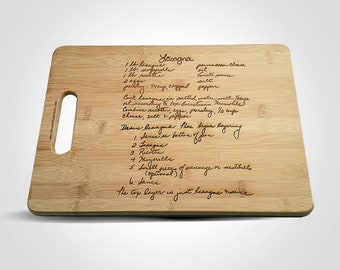 Lasagna
1 lb lasagna parmesan cheese
1 lb mozzarella oil
1 lb ricotta tomato sauce
2 eggs salt
parsley - chopped pepper
Cook lasagna in salted water with
oil according to box directions
Combine ricotta, eggs, parsley,
cheese, salt & pepper
Drain lasagna Then begin layering
1. Sauce on bottom of pan
2. Lasagna
3. Ricotta
4. Mozzarella
5. Small pieces of sausage or meatballs
(optional)
6. Sauce
The top layer is just lasagna